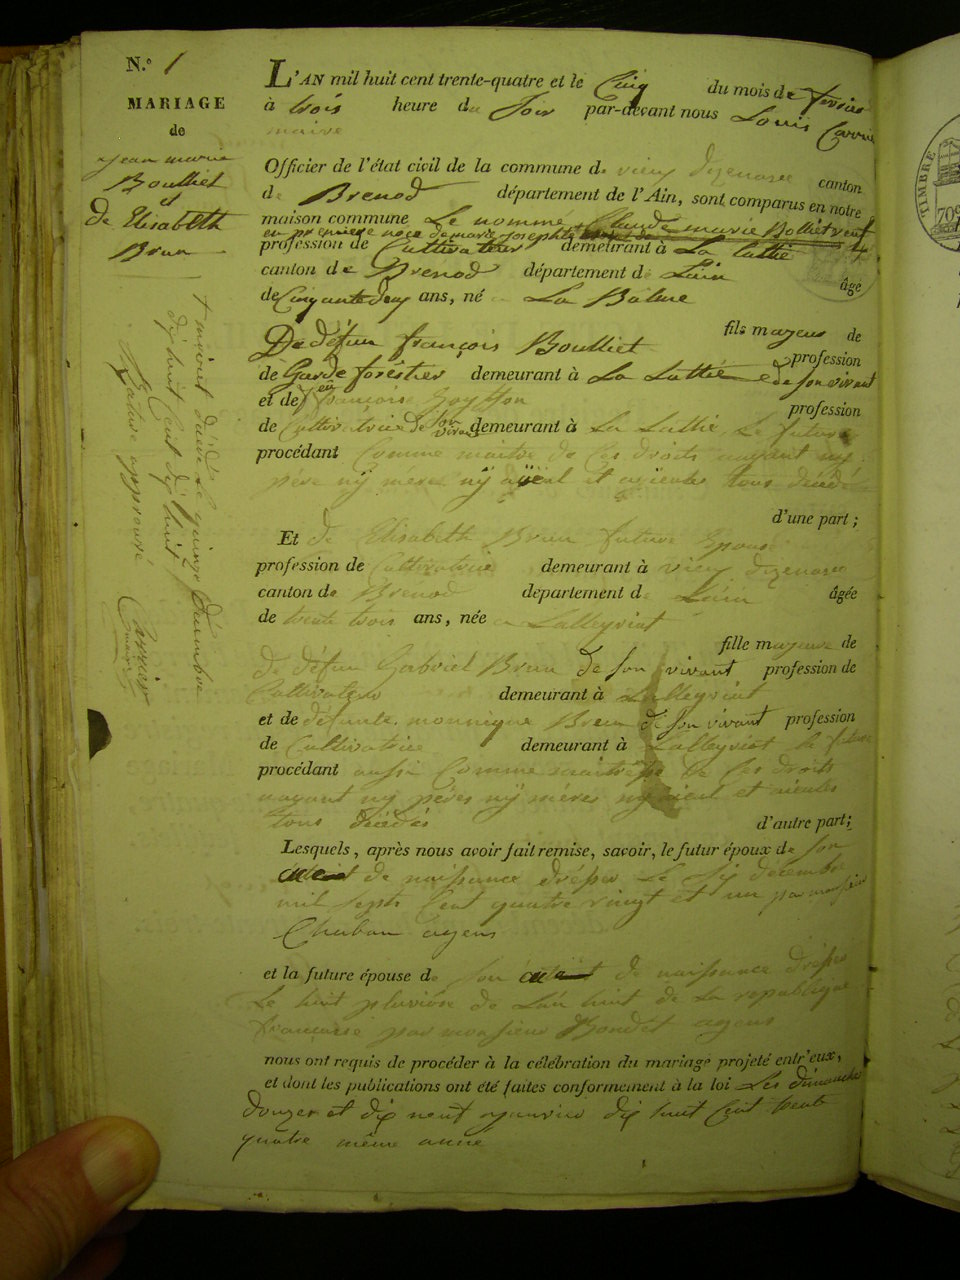 N.º 1
MARIAGE
de
jean marie
Boulliet
et
De Elisabeth
Brun
L'AN mil huit cent trente-quatre et le Cinq du mois de fevrier
à trois heure du Soir par-devant nous Louis Carrier
maire
Officier de l'état civil de la commune de vieu dizenave canton
de Brenod département de l'Ain, sont comparus en notre
maison commune Le nomme Claude marie Bolliet veuf
en premiere noce de marie josephte
profession de Cultivateur demeurant à La Lathie
canton de Brenod département de Lain âgé
de Cinquante deux ans, né a La Balme
fils majeur de
De défun françois Boulliet profession
de Garde forestier demeurant à La Lathie de son vivant
et de feu françoise Goyffon profession
de Cultivatrice de son vivant demeurant à La Lathie Le futur
procédant Comme maitre de Ces droits nayant ny
père ny mére ny ayëul et ayieules tous décédé
d'une part ;
Et de Elisabeth Brun future Epouse
profession de Cultivatrice demeurant à vieu dizenave
canton de Brenod département de Lain âgée
de trente trois ans, née a Lalleyriat
fille majeure de
de défun Gabriel Brun de son vivant profession de
Cultivateur demeurant à Lalleyriat
et de défunte monnique Brun de son vivant profession
de Cultivatrice demeurant à Lalleyriat la future
procédant aussi Comme maitresse de ses droits
nayant ny pères ny mères ny aieul et aieules
tous décédés d'autre part ;
Lesquels, après nous avoir fait remise, savoir, le futur époux de son
de naissance drésser Le Six décembre
mil sept Cent quatre vingt et un par monsieur
Chaban agens
et la future épouse de son de naissance drésser
Le huit pluviose de Lan huit de La republique
françaisse par monsieur Bondet agens
nous ont requis de procéder à la célébration du mariage projeté entr'eux,
et dont les publications ont été faites conformement à la loi Les dimanches
douze et dix neuf janvier dix huit Cent trente
quatre même anné
+ décédé Le quinze décembre
dix huit Cent dix huit
Rature approuvé Carrier
maire
TIMBRE